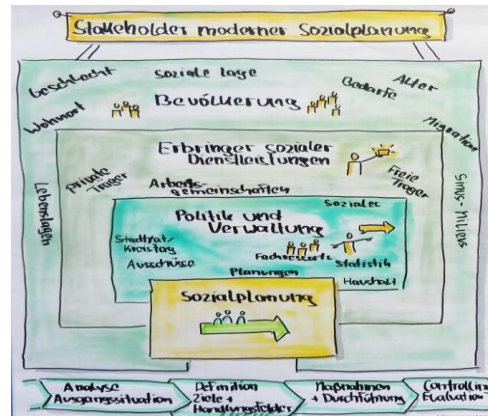 Stakeholder moderner Sozialplanung
Geschlecht
soziale Lage
Alter
Bedarfe
Wohnort
Bevölkerung
Migration
Lebenslagen
Sinus-Milieus
Erbringer sozialer
Dienstleistungen
Private
Träger
Arbeits-
gemeinschaften
Freie
Träger
Soziales
Politik und
Verwaltung
Stadtrat/
Kreistag
Ausschüsse
Fachressorts
Statistik
Planungen
Haushalt
Sozialplanung
Analyse
Ausgangssituation
Definition
Ziele +
Handlungsfelder
Maßnahmen
+ Durchführung
Controlling
Evaluation